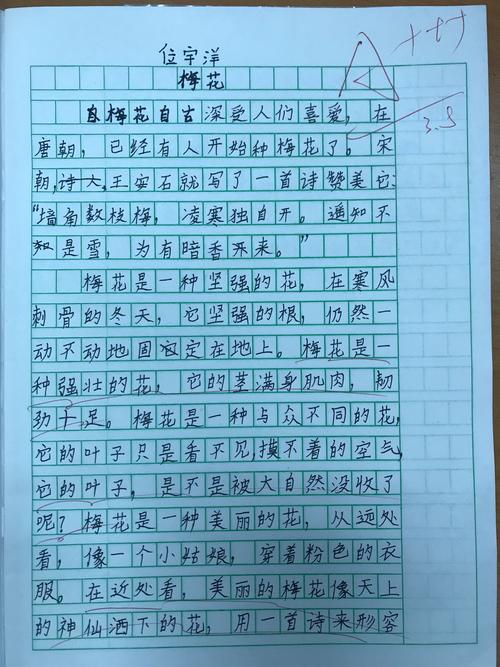 位宇洋
梅花
梅花自古深受人们喜爱，在
唐朝，已经有人开始种梅花了。宋
朝，诗人王安石就写了一首诗赞美它：
“墙角数枝梅，凌寒独自开。遥知不
是雪，为有暗香来。”
梅花是一种坚强的花，在寒风
刺骨的冬天，它坚强的根，仍然一
动不动地固定在地上。梅花是一
种强壮的花，它的茎满身肌肉，韧
劲十足。梅花是一种与众不同的花，
它的叶子只是看不见，摸不着的空气，
它的叶子，是不是被大自然没收了
呢？梅花是一种美丽的花，从远处
看，像一个小姑娘，穿着粉色的衣
服。在近处看，美丽的梅花像天上
的神仙洒下的花，用一首诗来形容
A+++
3.8